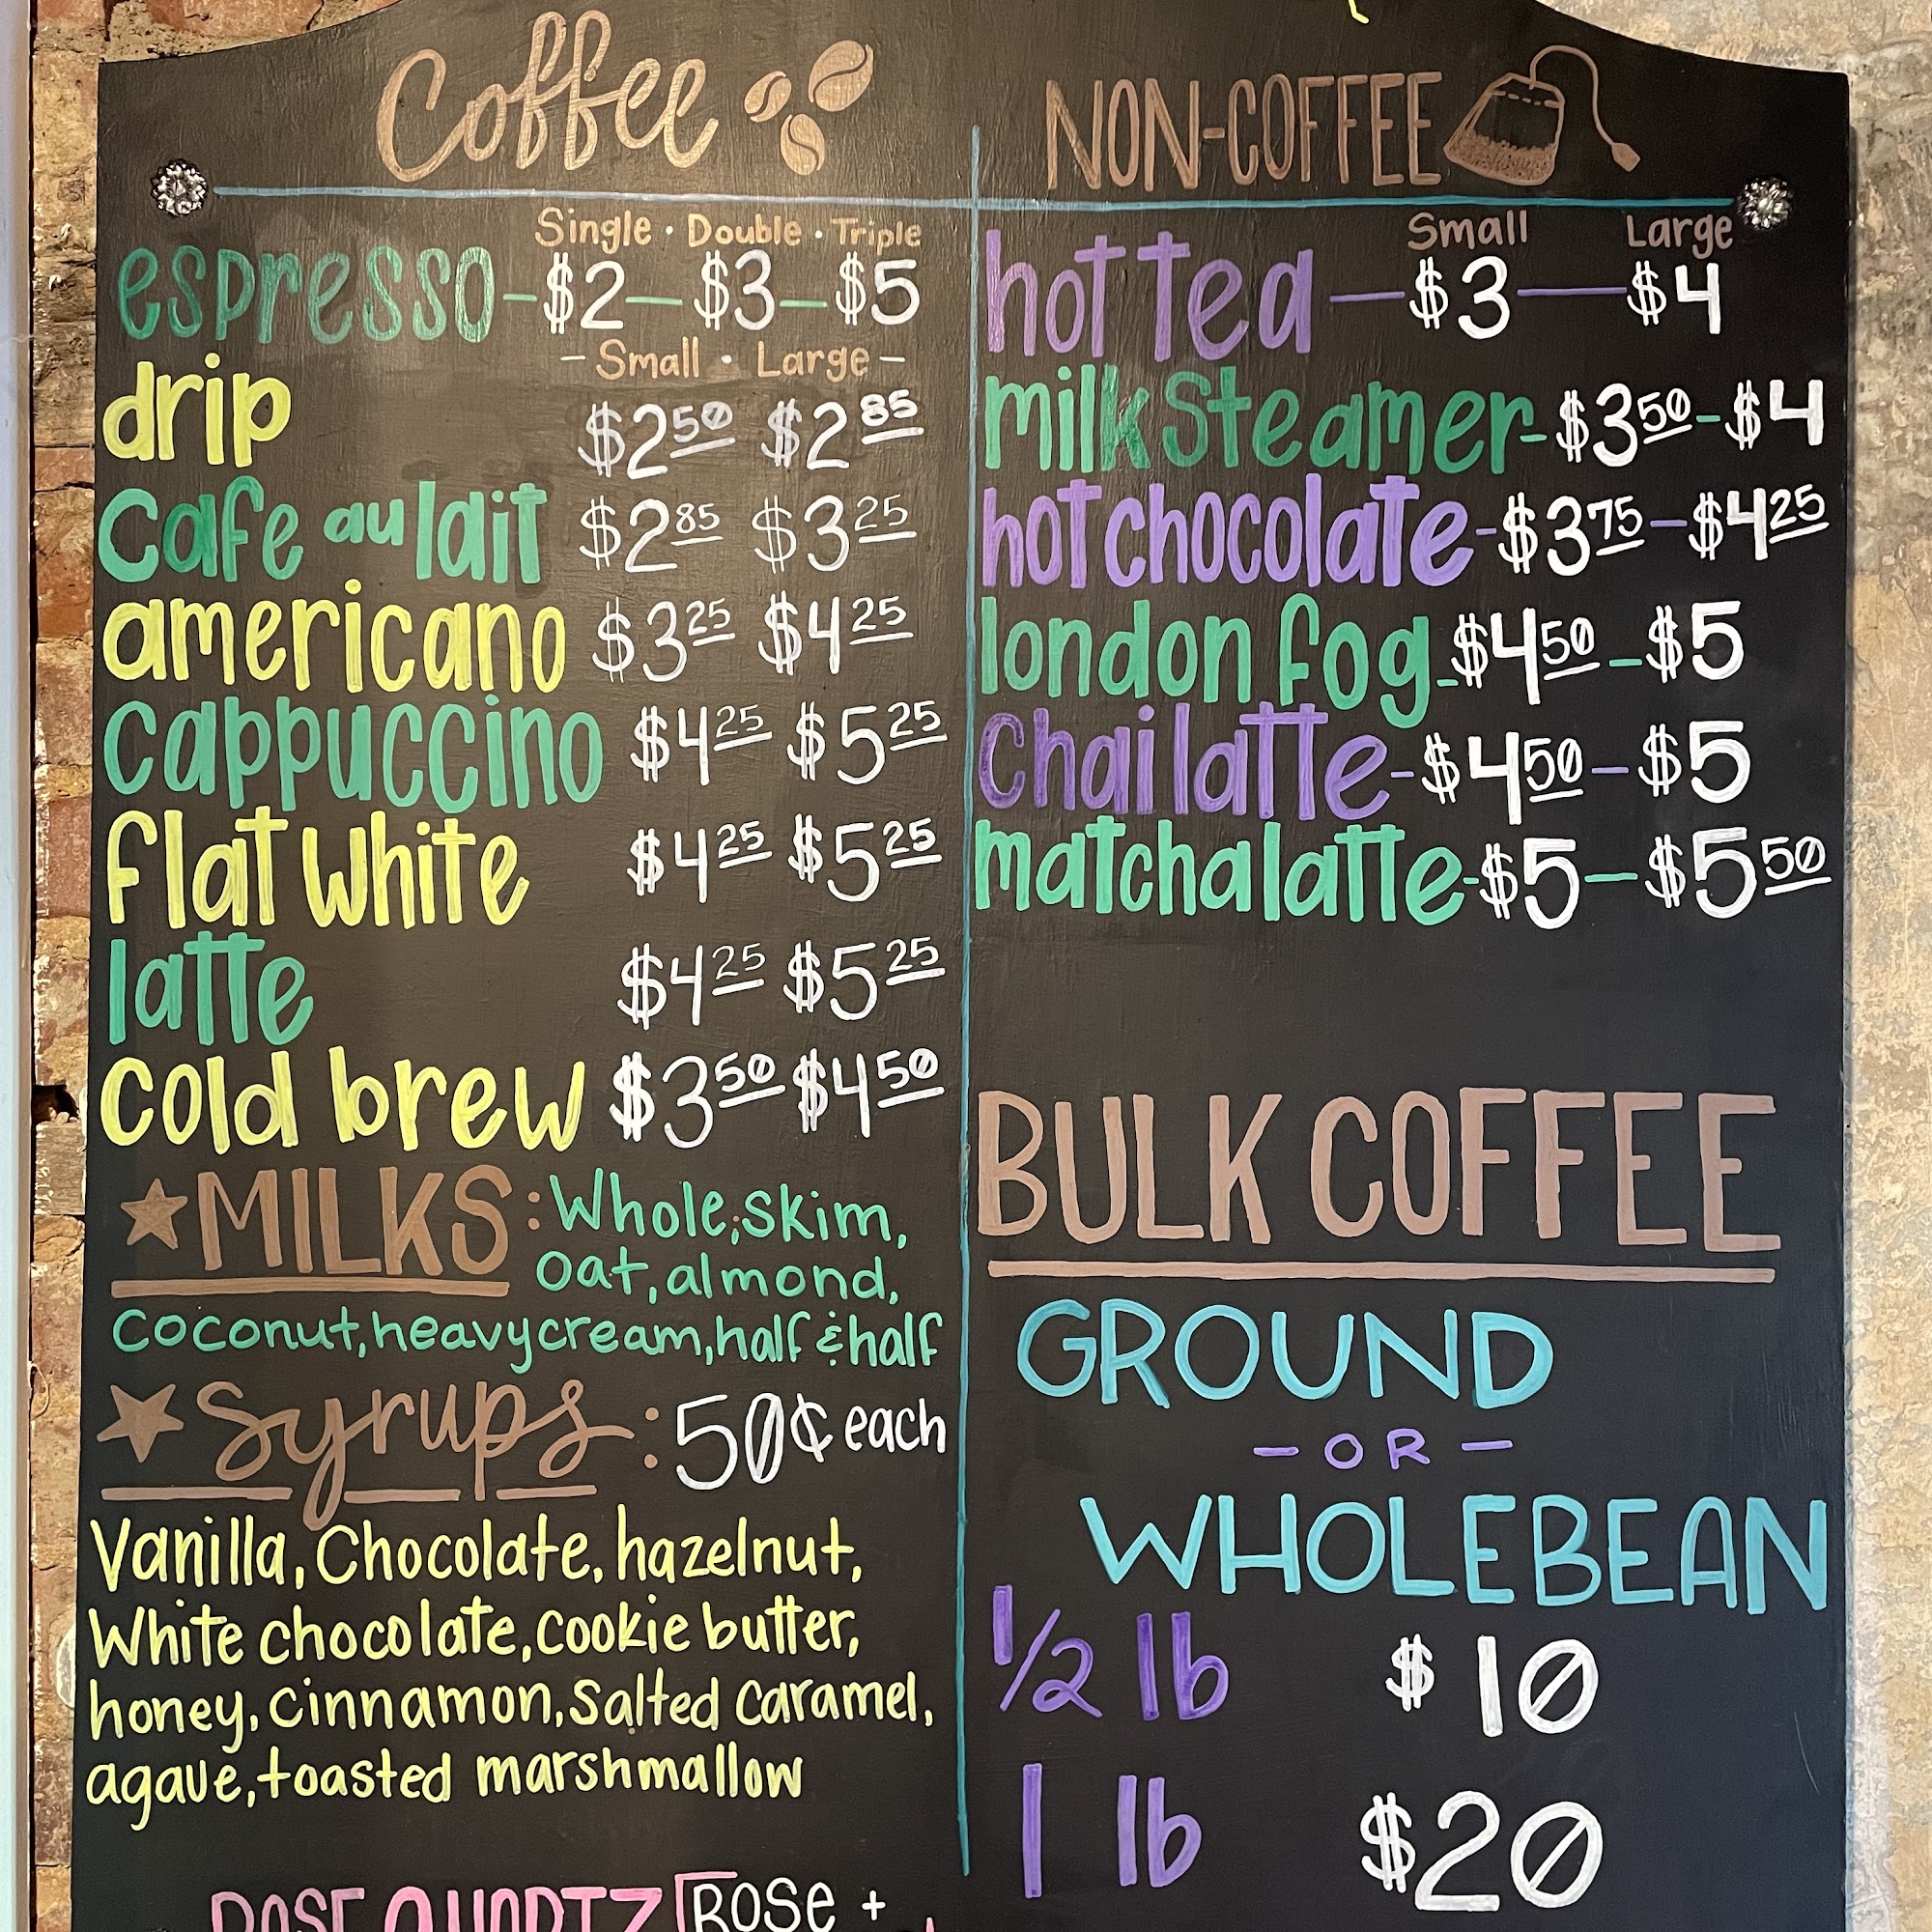 Coffee
Single · Double · Triple
espresso - $2 - $3 - $5
- Small · Large -
drip $2.50 $2.85
Cafe au lait $2.85 $3.25
americano $3.25 $4.25
cappuccino $4.25 $5.25
flat white $4.25 $5.25
latte $4.25 $5.25
cold brew $3.50 $4.50
MILKS: Whole, skim,
oat, almond,
Coconut, heavy cream, half & half
Syrups: 50¢ each
Vanilla, Chocolate, hazelnut,
White chocolate, cookie butter,
honey, cinnamon, salted caramel,
agave, toasted marshmallow
ROSE QUARTZ ROSE +
NON-COFFEE
Small Large
hot tea - $3 - $4
milk steamer - $3.50 - $4
hot chocolate - $3.75 - $4.25
london fog - $4.50 - $5
Chai latte - $4.50 - $5
matcha latte - $5 - $5.50
BULK COFFEE
GROUND
- OR -
WHOLE BEAN
1/2 lb $10
1 lb $20